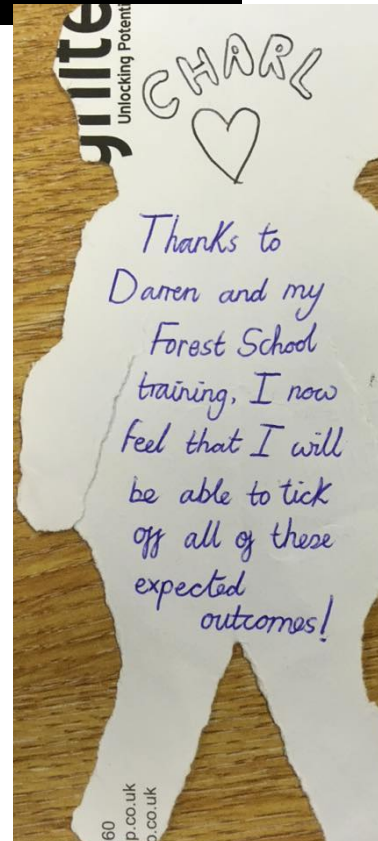 gnite
Unlocking Potenti
CHARL
Thanks to
Darren and my
Forest School
training, I now
feel that I will
be able to tick
off all of these
expected
outcomes!
60
p.co.uk
o.co.uk